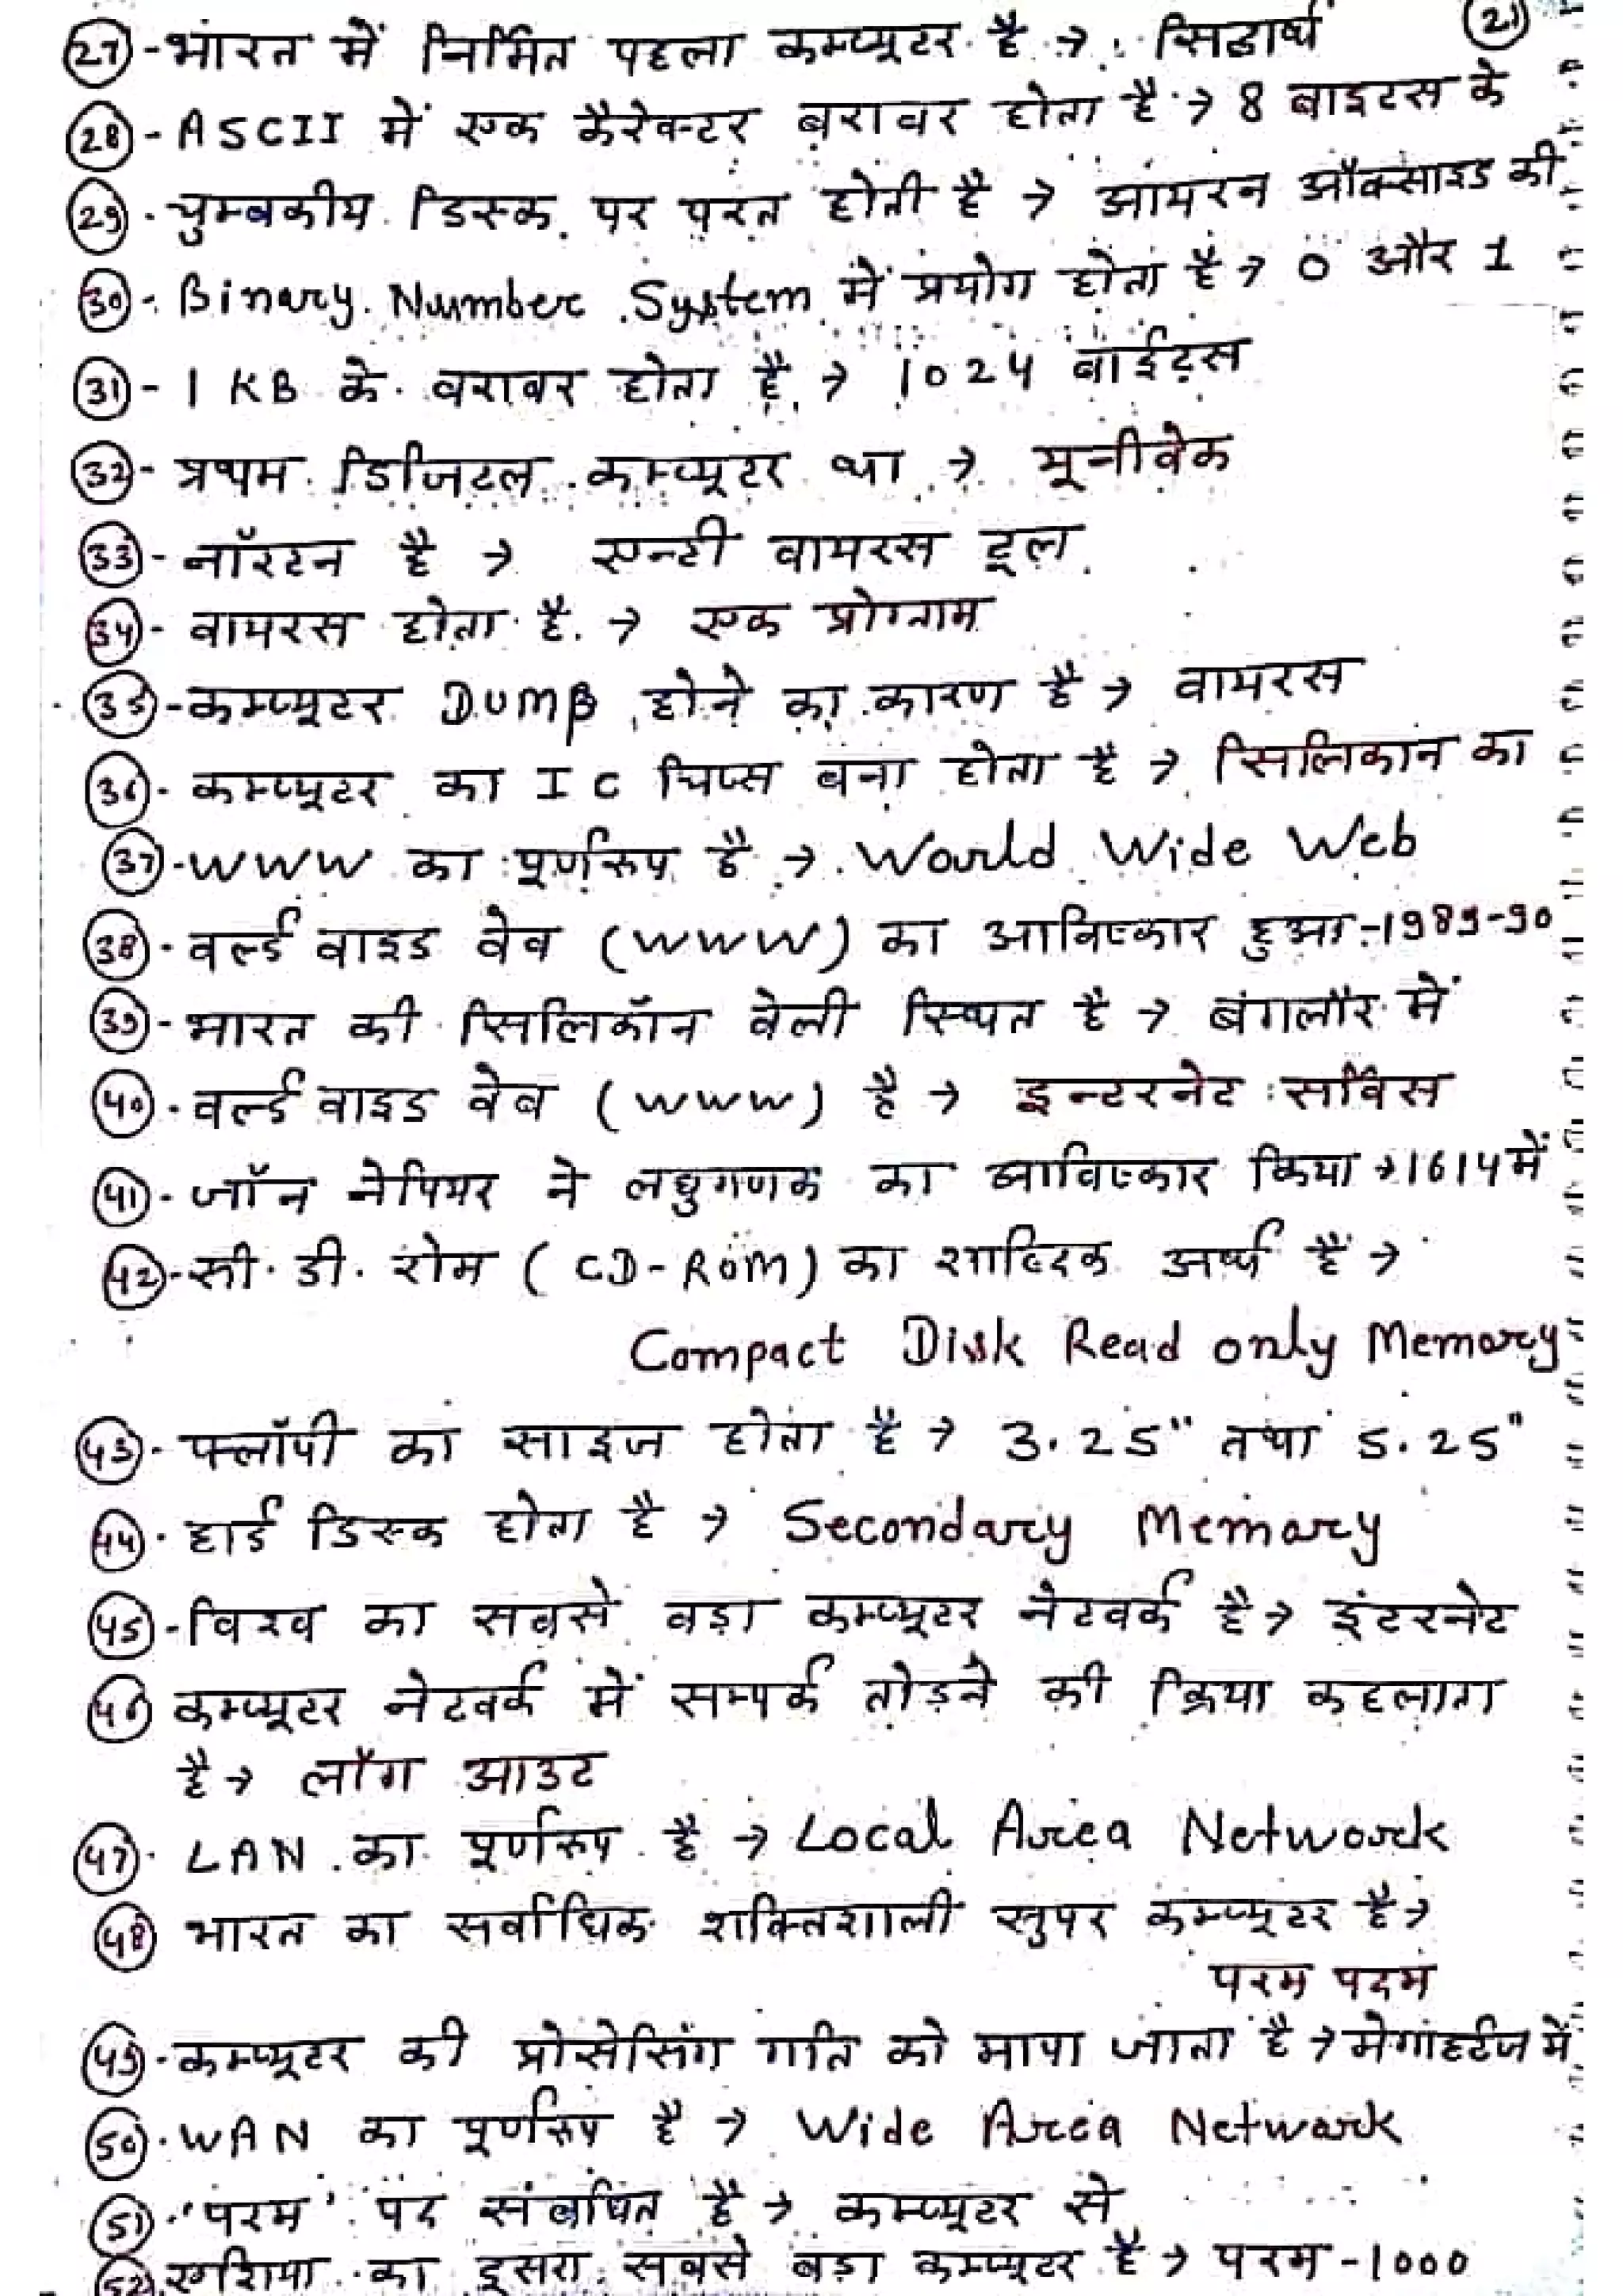 (21)
(27)-भारत में निर्मित पहला कम्प्यूटर है → सिद्धार्थ
(28)- ASCII में एक कैरेक्टर बराबर होता है → 8 बाइटस के
(29)- चुम्बकीय डिस्क पर परत होती है → आयरन ऑक्साइड की
(30)- Binary Number System में प्रयोग होता है → 0 और 1
(31)- 1 KB के बराबर होता है → 1024 बाईट्स
(32)- प्रथम डिजिटल कम्प्यूटर था → यूनीवेक
(33)- नॉरटन है → एन्टी वायरस टूल
(34)- वायरस होता है → एक प्रोग्राम
(35)-कम्प्यूटर DUMB होने का कारण है → वायरस
(36)- कम्प्यूटर का IC चिप्स बना होता है → सिलिकान का
(37)-WWW का पूर्णरूप है → World Wide Web
(38)- वर्ल्ड वाइड वेब (WWW) का आविष्कार हुआ-1989-90
(39)- भारत की सिलिकॉन वेली स्थित है → बंगलौर में
(40)- वर्ल्ड वाइड वेब (WWW) है → इन्टरनेट सर्विस
(41)- जॉन नेपियर ने लघुगणक का आविष्कार किया →1614 में
(42)-सी. डी. रोम (CD-ROM) का शाब्दिक अर्थ है →
Compact Disk Read only Memory
(43)- फ्लॉपी का साइज होता है → 3.25" तथा 5.25"
(44)- हार्ड डिस्क होता है → Secondary Memory
(45)-विश्व का सबसे बड़ा कम्प्यूटर नेटवर्क है → इंटरनेट
(46) कम्प्यूटर नेटवर्क में सम्पर्क तोड़ने की क्रिया कहलाता
है → लॉग आउट
(47)- LAN का पूर्णरूप है → Local Area Network
(48) भारत का सर्वाधिक शक्तिशाली सुपर कम्प्यूटर है →
परम पदम
(49)-कम्प्यूटर की प्रोसेसिंग गति को मापा जाता है → मेगाहर्टज में
(50)- WAN का पूर्णरूप है → Wide Area Network
(51)-'परम' पद संबंधित है → कम्प्यूटर से
(52) एशिया का दूसरा सबसे बड़ा कम्प्यूटर है → परम-1000